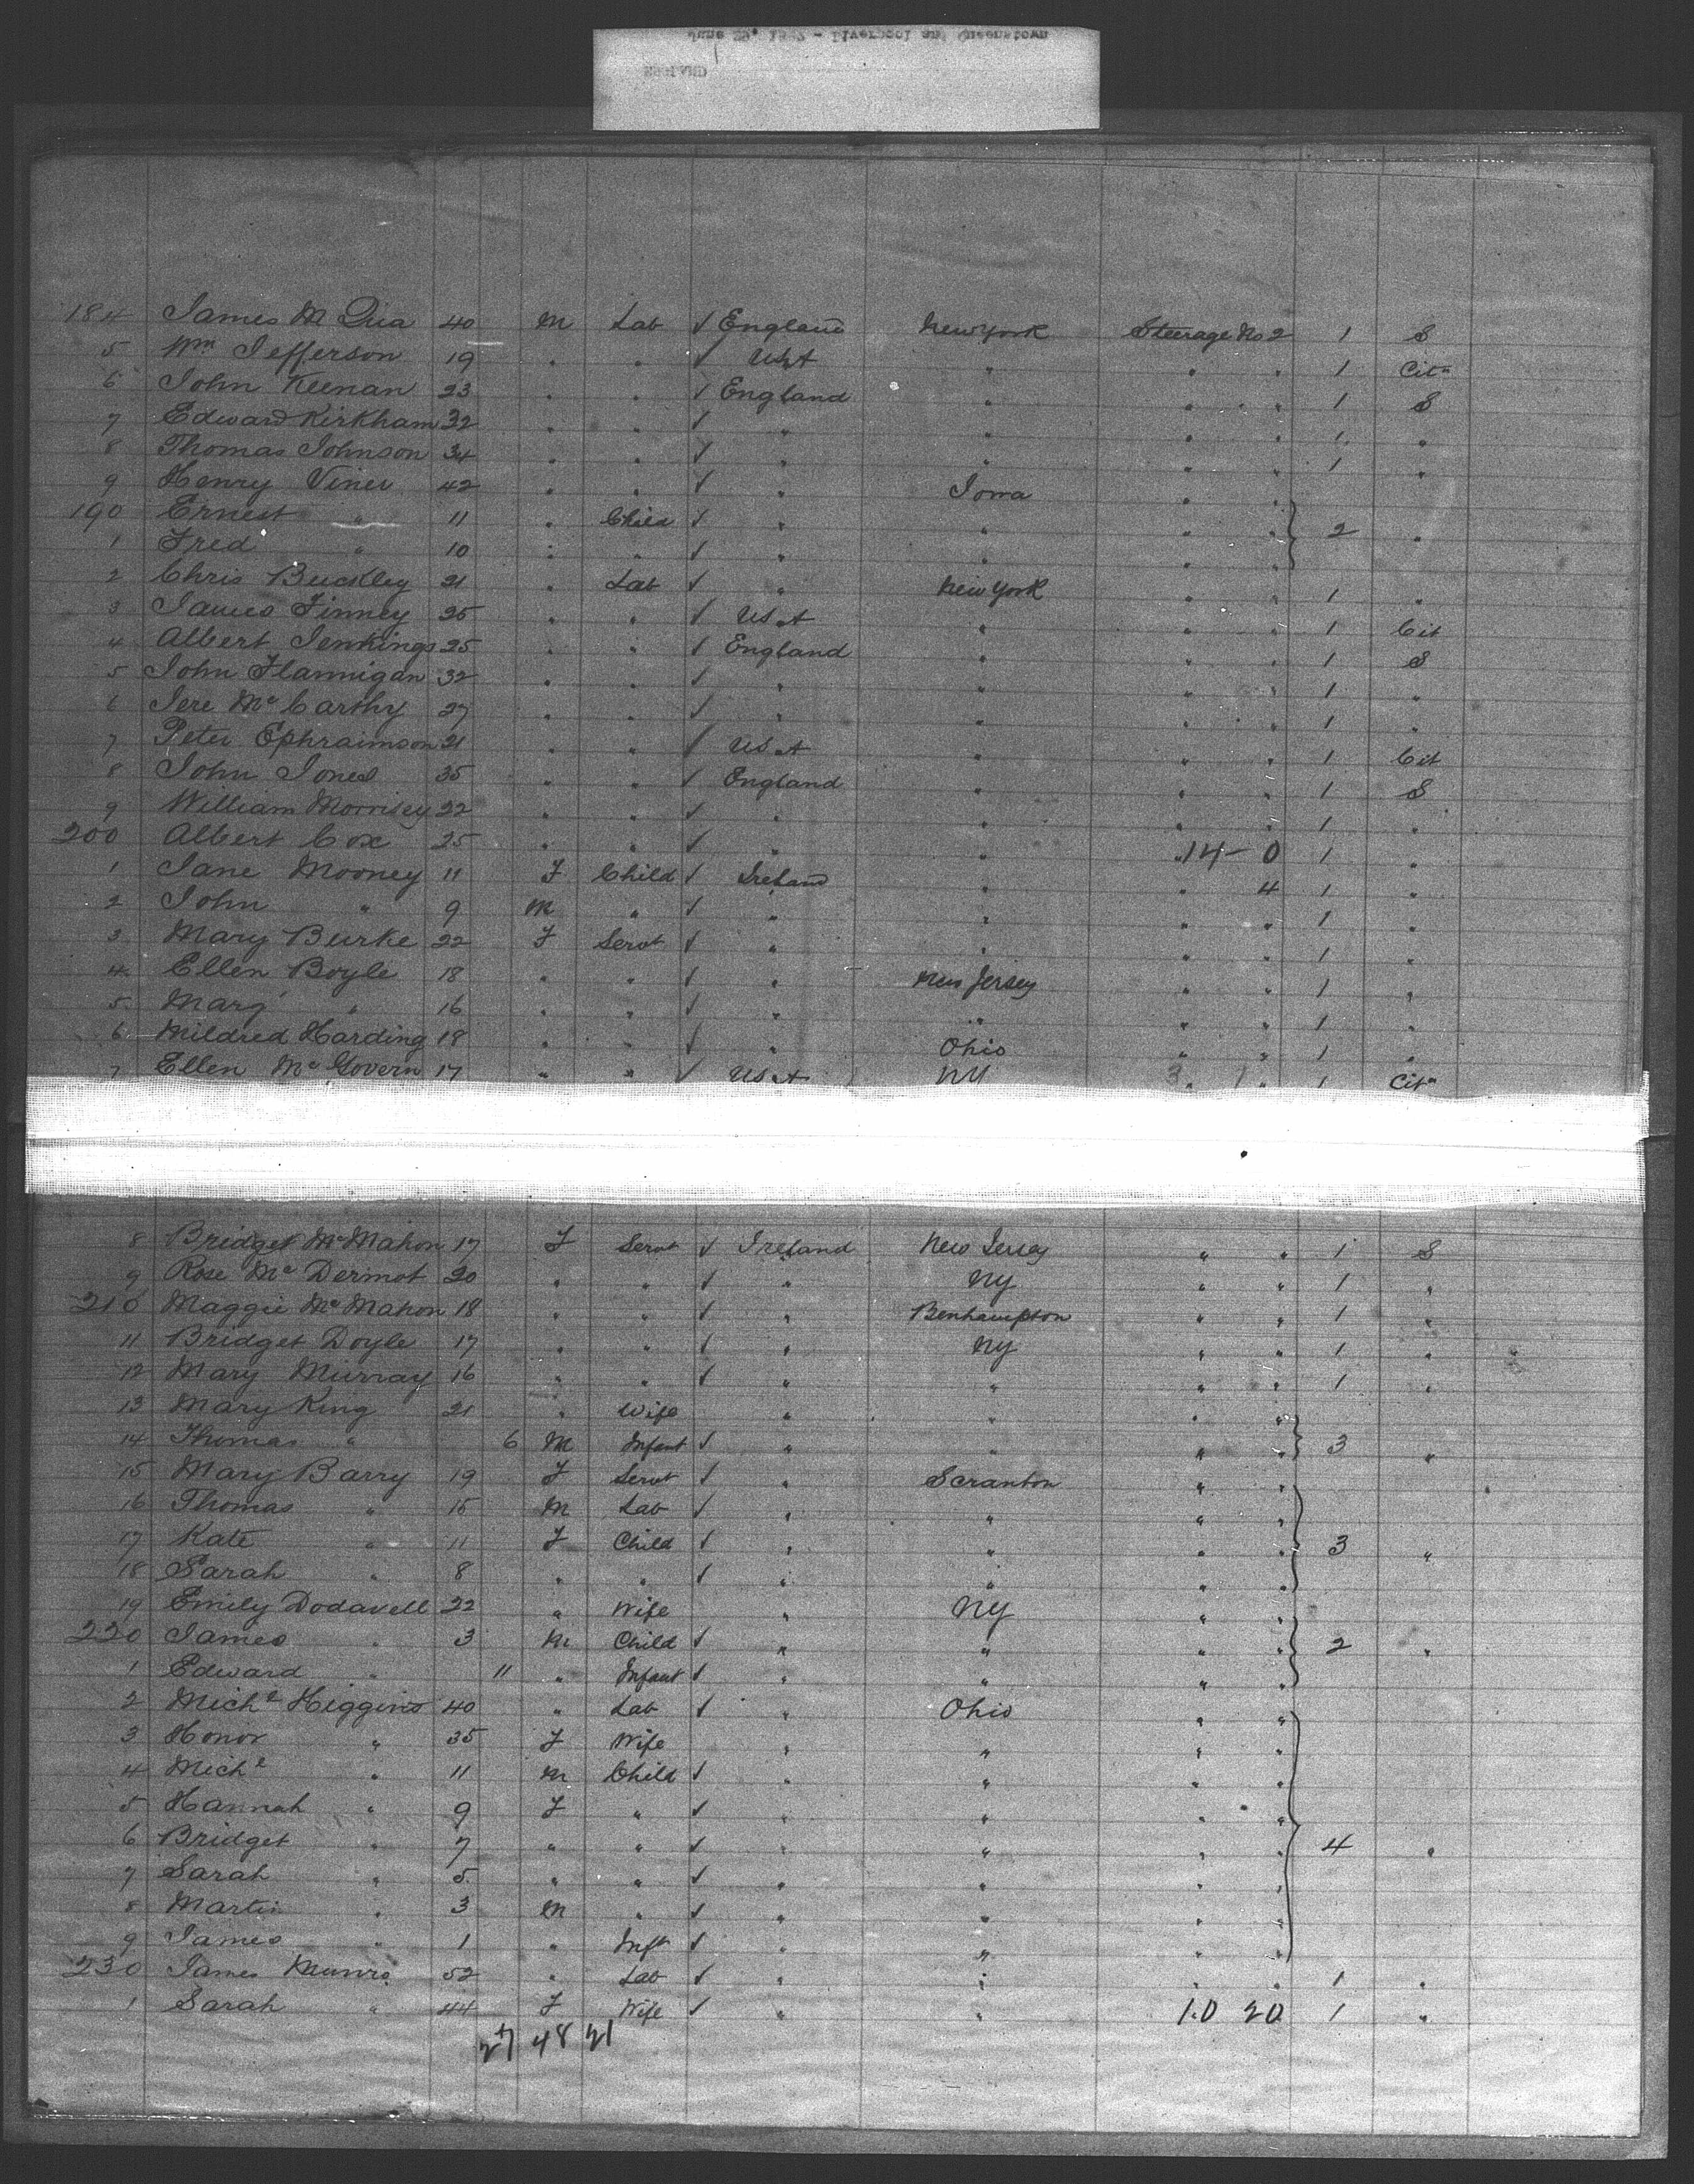 June 29, 1892 - Liverpool and Queenstown
ENGLAND
184 James M Qua 40 M Lab √ England New York Steerage No 2 1 S
5 Wm Jefferson 19 " " √ USA " " " 1 Citn
6 John Keenan 23 " " √ England " " " 1 S
7 Edward Kirkham 32 " " √ " " " " 1 "
8 Thomas Johnson 34 " " √ " " " " 1 "
9 Henry Viner 42 " " √ " Iowa " "
190 Ernest " 11 " Child √ " " " " 2 "
1 Fred " 10 " " √ " " " "
2 Chris Buckley 21 " Lab √ " New York " " 1 "
3 James Finney 25 " " √ USA " " " 1 Cit
4 Albert Jenkings 25 " " √ England " " " 1 S
5 John Flannigan 32 " " √ " " " " 1 "
6 Jere Mc Carthy 27 " " √ " " " " 1 "
7 Peter Ephraimson 21 " " √ USA " " " 1 Cit
8 John Jones 35 " " √ England " " " 1 S
9 William Morrisey 22 " " √ " " " " 1 "
200 Albert Cox 25 " " √ " " 14 - 0 1 "
1 Jane Mooney 11 F Child √ Ireland " " 4 1 "
2 John " 9 M " √ " " " " 1 "
3 Mary Burke 22 F Servt √ " " " " 1 "
4 Ellen Boyle 18 " " √ " New Jersey " " 1 "
5 Marg " 16 " " √ " " " " 1 "
6 Mildred Harding 18 " " √ " Ohio " " 1 "
7 Ellen Mc Govern 17 " " √ USA NY " " 1 Citn
8 Bridget McMahon 17 F Servt √ Ireland New Jersey " " 1 S
9 Rose Mc Dermot 20 " " √ " NY " " 1 "
210 Maggie McMahon 18 " " √ " Benhampton " " 1 "
11 Bridget Doyle 17 " " √ " NY " " 1 "
12 Mary Murray 16 " " √ " " " " 1 "
13 Mary King 21 " Wife " " " "
14 Thomas " 6 M Infant √ " " " " 3 "
15 Mary Barry 19 F Servt √ " Scranton " "
16 Thomas " 15 M Lab √ " " " "
17 Kate " 11 F Child √ " " " " 3 "
18 Sarah " 8 " " √ " " " "
19 Emily Dodavell 22 " Wife " NY " "
220 James " 3 M Child √ " " " " 2 "
1 Edward " 11 " Infant √ " " " "
2 Michl Higgins 40 " Lab √ " Ohio " "
3 Honor " 35 F Wife " " " "
4 Michl " 11 M Child √ " " " "
5 Hannah " 9 F " √ " " " "
6 Bridget " 7 " " √ " " " " 4 "
7 Sarah " 5 " " √ " " " "
8 Martin " 3 M " √ " " " "
9 James " 1 " Inft √ " " " "
230 James Munro 52 " Lab √ " " " " 1 "
1 Sarah " 44 F Wife √ " " 10 20 1 "
27 48 21